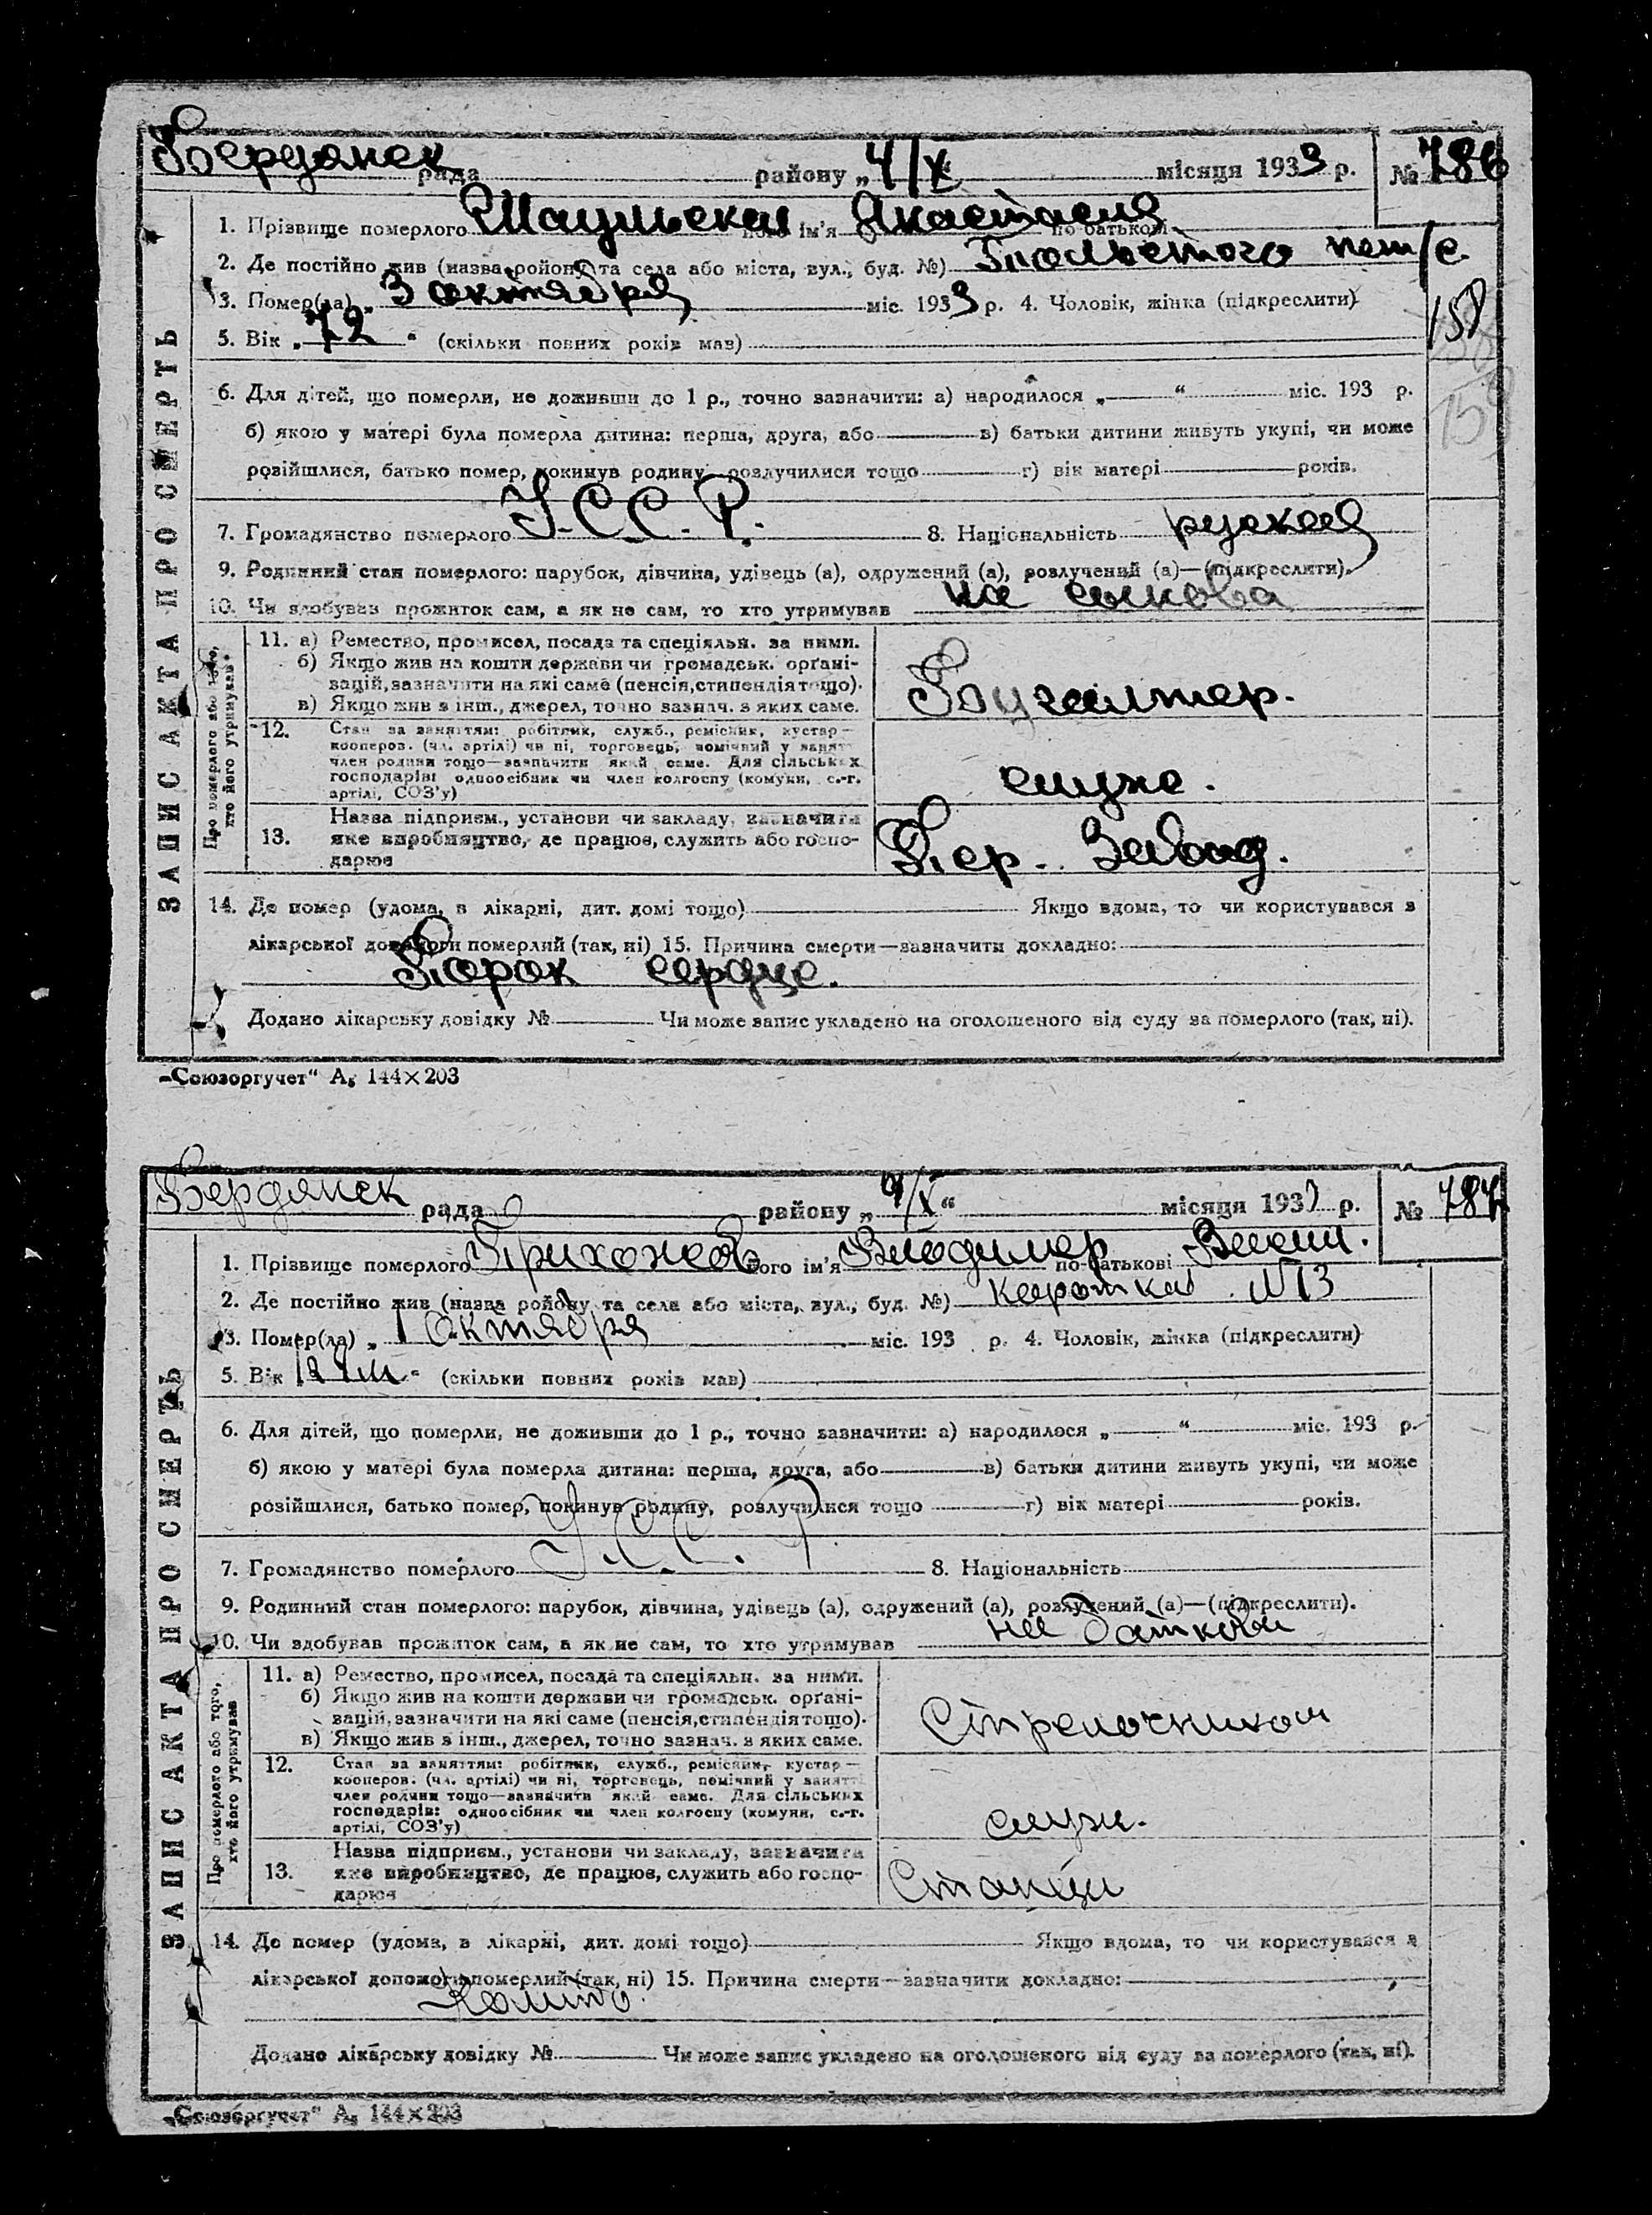 Бердянск рада району „4/X" місяця 1933 р. № 786
1. Прізвище померлого його ім'я Анастасия по батькові
2. Де постійно жив (назва району та села або міста, вул., буд. №) Толстого
3. Помер(ла) „3 октября міс. 1933 р. 4. Чоловік, жінка (підкреслити)
5. Вік „72" (скільки повних років мав)
6. Для дітей, що померли, не доживши до 1 р., точно зазначити: а) народилося „ “ міс. 193 р.
б) якою у матері була померла дитина: перша, друга, або в) батьки дитини живуть укупі, чи може
розійшлися, батько помер, покинув родину, розлучилися тощо г) вік матері років.
7. Громадянство померлого У.С.С.Р. 8. Національність руская
9. Родинний стан померлого: парубок, дівчина, удівець (а), одружений (а), розлучений (а)—(підкреслити).
10. Чи здобував прожиток сам, а як не сам, то хто утримував на сынова
ЗАПИС АКТА ПРО СМЕРТЬ
Про померлого або того, хто його утримував
11. а) Ремество, промисел, посада та спеціяльн. за ними.
б) Якщо жив на кошти держави чи громадськ. орґані-
зацій, зазначити на які саме (пенсія, стипендія тощо).
в) Якщо жив з інш., джерел, точно зазнач. з яких саме.
Бухгалтер.
12. Стан за заняттям: робітник, служб., ремісник, кустар—
кооперов. (чл. артілі) чи ні, торговець, помічний у занятті
член родини тощо—зазначити який саме. Для сільських
господарів: одноосібник чи член колгоспу (комуни, с.-г.
артілі, СОЗ'у)
служ.
13. Назва підприєм., установи чи закладу, зазначити
яке виробництво, де працює, служить або госпо-
дарює
Пер. Завод.
14. Де помер (удома, в лікарні, дит. домі тощо) Якщо вдома, то чи користувався з
лікарської допомоги померлий (так, ні) 15. Причина смерти—зазначити докладно:
Порок сердце.
Додано лікарську довідку № Чи може запис укладено на оголошеного від суду за померлого (так, ні).
„Союзоргучет“ А₅ 144×203
Бердянск рада району „4/X“ місяця 1933 р. № 787
1. Прізвище померлого Приходков його ім'я Владимер по-батькові
2. Де постійно жив (назва району та села або міста, вул., буд. №) Кароткая №13
3. Помер(ла) „1 Октября міс. 193 р. 4. Чоловік, жінка (підкреслити)
5. Вік (скільки повних років мав)
6. Для дітей, що померли, не доживши до 1 р., точно зазначити: а) народилося „ “ міс. 193 р.
б) якою у матері була померла дитина: перша, друга, або в) батьки дитини живуть укупі, чи може
розійшлися, батько помер, покинув родину, розлучилися тощо г) вік матері років.
7. Громадянство померлого У.С.С.Р. 8. Національність
9. Родинний стан померлого: парубок, дівчина, удівець (а), одружений (а), розлучений (а)—(підкреслити).
10. Чи здобував прожиток сам, а як не сам, то хто утримував на баткова
ЗАПИС АКТА ПРО СМЕРТЬ
Про померлого або того, хто його утримував
11. а) Ремество, промисел, посада та спеціяльн. за ними.
б) Якщо жив на кошти держави чи громадськ. орґані-
зацій, зазначити на які саме (пенсія, стипендія тощо).
в) Якщо жив з інш., джерел, точно зазнач. з яких саме.
Стрелочником
12. Стан за заняттям: робітник, служб., ремісник, кустар—
кооперов. (чл. артілі) чи ні, торговець, помічний у занятті
член родини тощо—зазначити який саме. Для сільських
господарів: одноосібник чи член колгоспу (комуни, с.-г.
артілі, СОЗ'у)
служ.
13. Назва підприєм., установи чи закладу, зазначити
яке виробництво, де працює, служить або госпо-
дарює
Станции
14. Де помер (удома, в лікарні, дит. домі тощо) Якщо вдома, то чи користувався з
лікарської допомоги померлий (так, ні) 15. Причина смерти—зазначити докладно:
Додано лікарську довідку № Чи може запис укладено на оголошеного від суду за померлого (так, ні).
„Союзоргучет“ А₅ 144×203